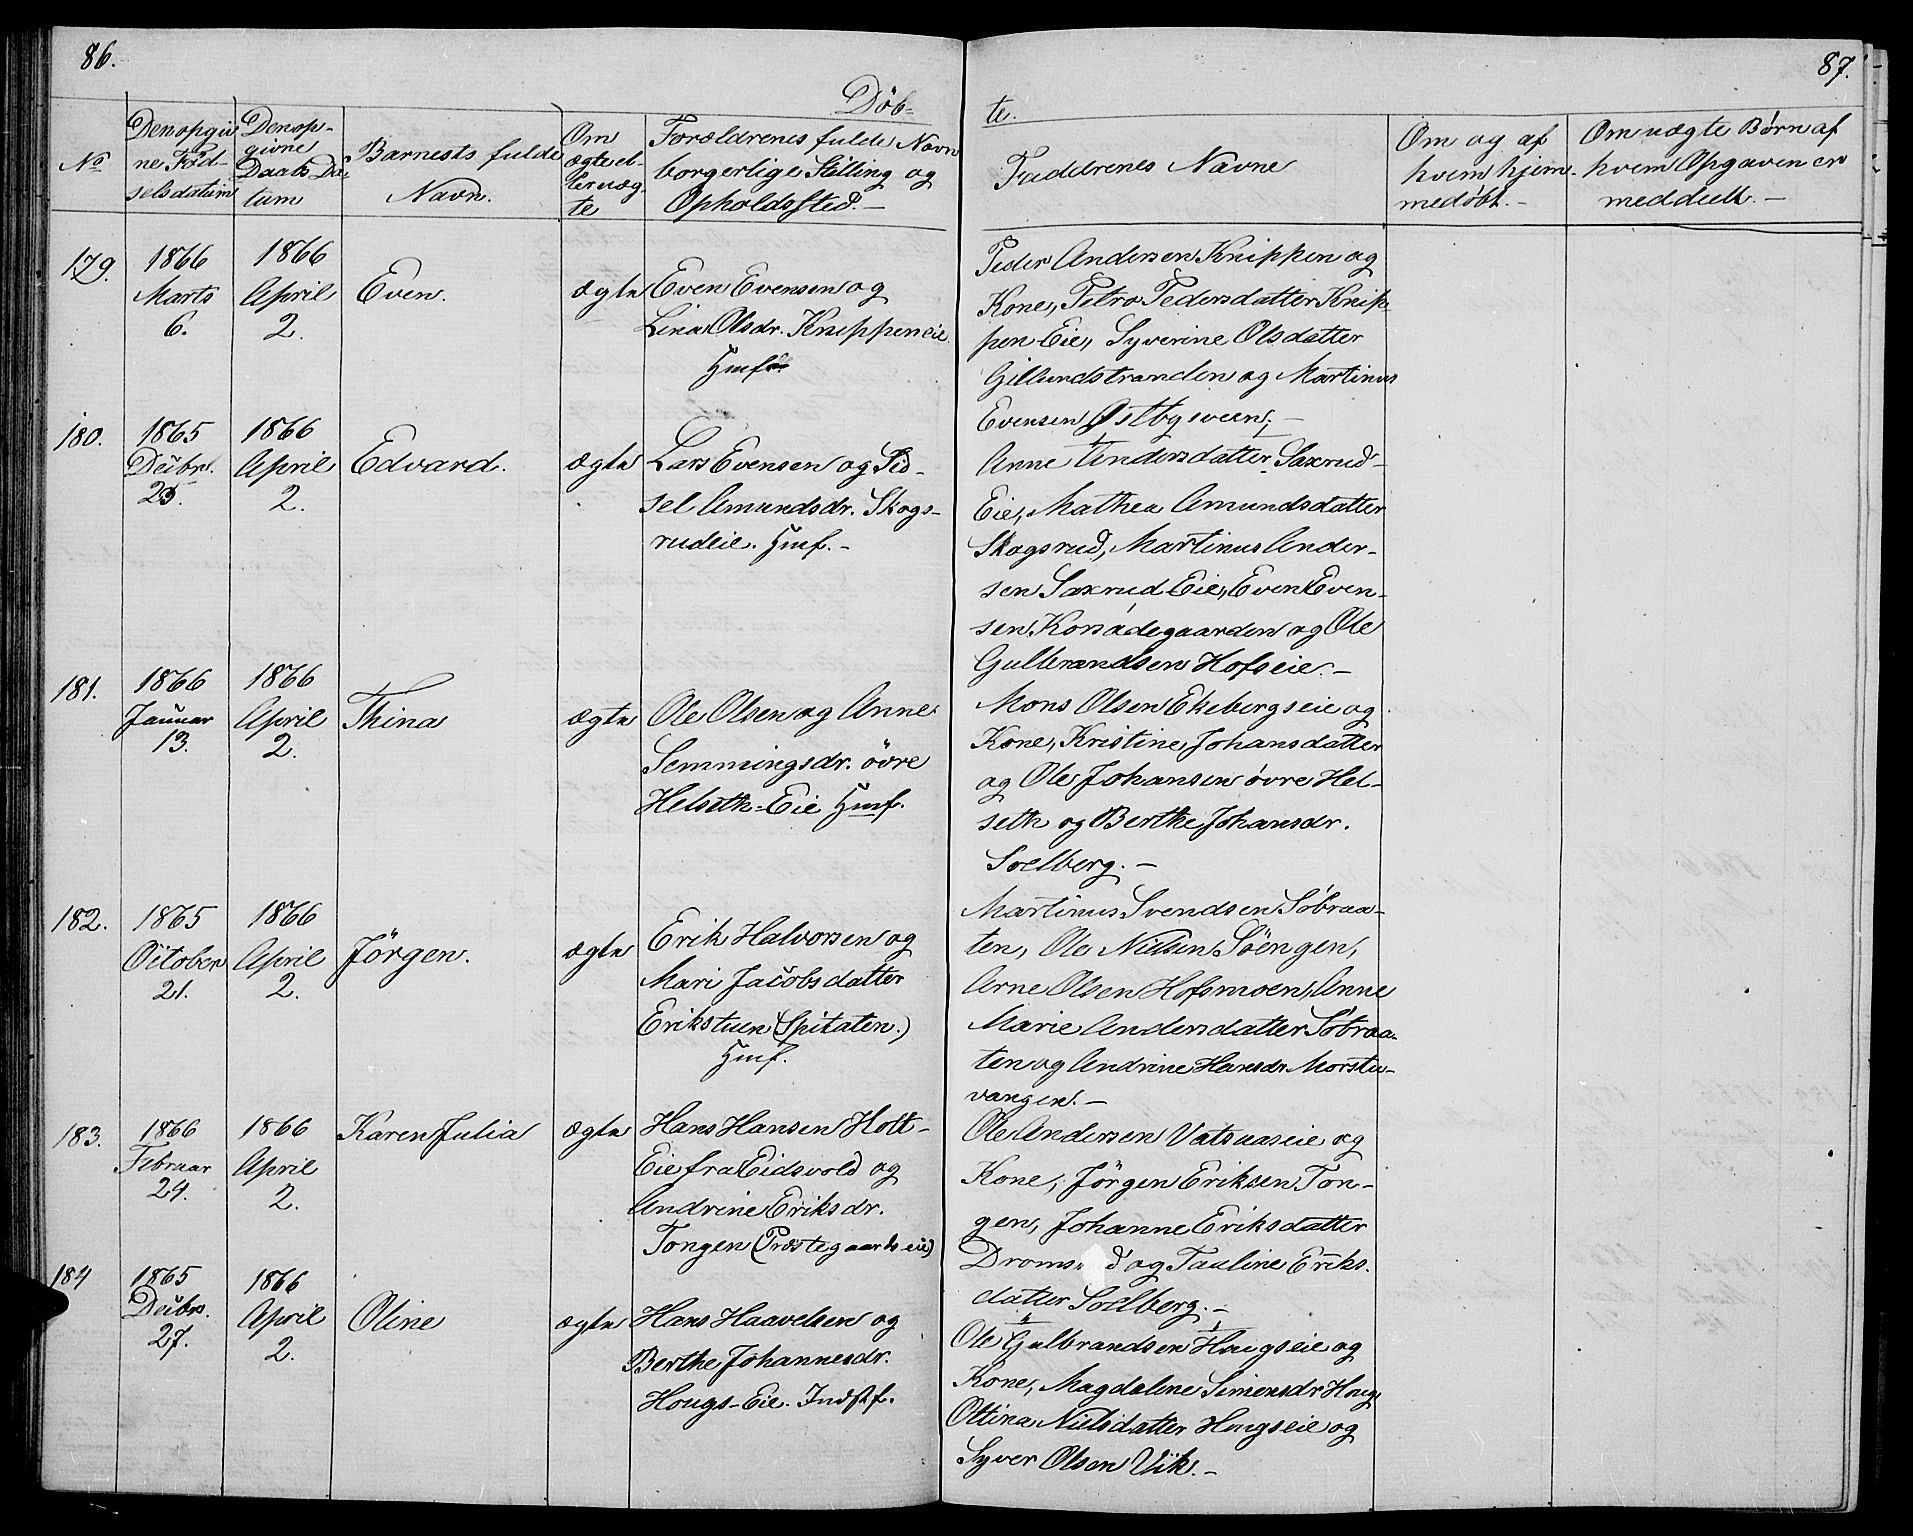 86.
87.
Døb-
te.
No
Den opgiv
ne Fød-
selsdatum
Den op-
givne
Daabs Da-
tum
Barnets fulde
Navn.
Om
ægte el-
ler uæg-
te
Forældrenes fulde Navn
borgerlige Stilling og
Opholdssted.-
Faddrenes Navne
Om og af
hvem hjem-
medøbt.-
Om uægte Børn af
hvem Opgaven er
meddeelt.-
179.
1866
Marts
6.
1866
April
2.
Even.
ægte
Even Evensen og
Lina Olsdr. Knippeneie
Hmf.
Peder Andersen Knippen og
Kone, Petra Pedersdatter Knip-
pen Eie, Syverine Olsdatter
Gillundstranden og Martinus
Evensen Østbysveen,-
180.
1865
Decbr.
25.
1866
April
2.
Edvard.
ægte
Lars Evensen og Sid-
sel Amundsdr. Skogs-
rudeie. Hmf.-
Anne Andersdatter Saxrud-
Eie, Mathea Amundsdatter
Skogsrud, Martinus Ander-
sen Saxrud Eie, Even Even-
sen Korsødegaarden og Ole
Gulbrandsen Hofseie.-
181.
1866
Januar
13.
1866
April
2.
Thina
ægte
Ole Olsen og Anne
Semmingsdr. övre
Helseth-Eie Hmf.
Mons Olsen Ekebergseie og
Kone, Kristine Johansdatter
og Ole Johansen övre Hel-
seth og Berthe Johansdr.
Soelberg.-
182.
1865
October
21.
1866
April
2.
Jörgen.
ægte
Erik Halvorsen og
Mari Jacobsdatter
Erikstuen (Spitaten.)
Hmf.
Martinus Svendsen Söbraa-
ten, Ole Nielsen Söengen,
Arne Olsen Hofsmoen, Anne
Marie Andersdatter Söbraa-
ten og Andrine Hansdr. Morstu-
vangen.-
183.
1866
Februar
24.
1866
April
2.
Karen Julia
ægte
Hans Hansen Holt-
Eie fra Eidsvold og
Andrine Eriksdr.
Tongen (Præstegaardseie)
Ole Andersen Vatsuaseie og
Kone, Jörgen Eriksen Ton-
gen, Johanne Eriksdatter
og Pauline Eriks-
datter Soelberg.-
184
1865
Decbr.
27.
1866
April
2.
Oline
ægte
Hans Haavelsen og
Berthe Johannesdr.
Hougs-Eie. Indstf.
Ole Gulbrandsen Hougseie og
Kone, Magdalene Simensdr Houg,
Oltina Nielsdatter Hougseie og
Syver Olsen Viik.-